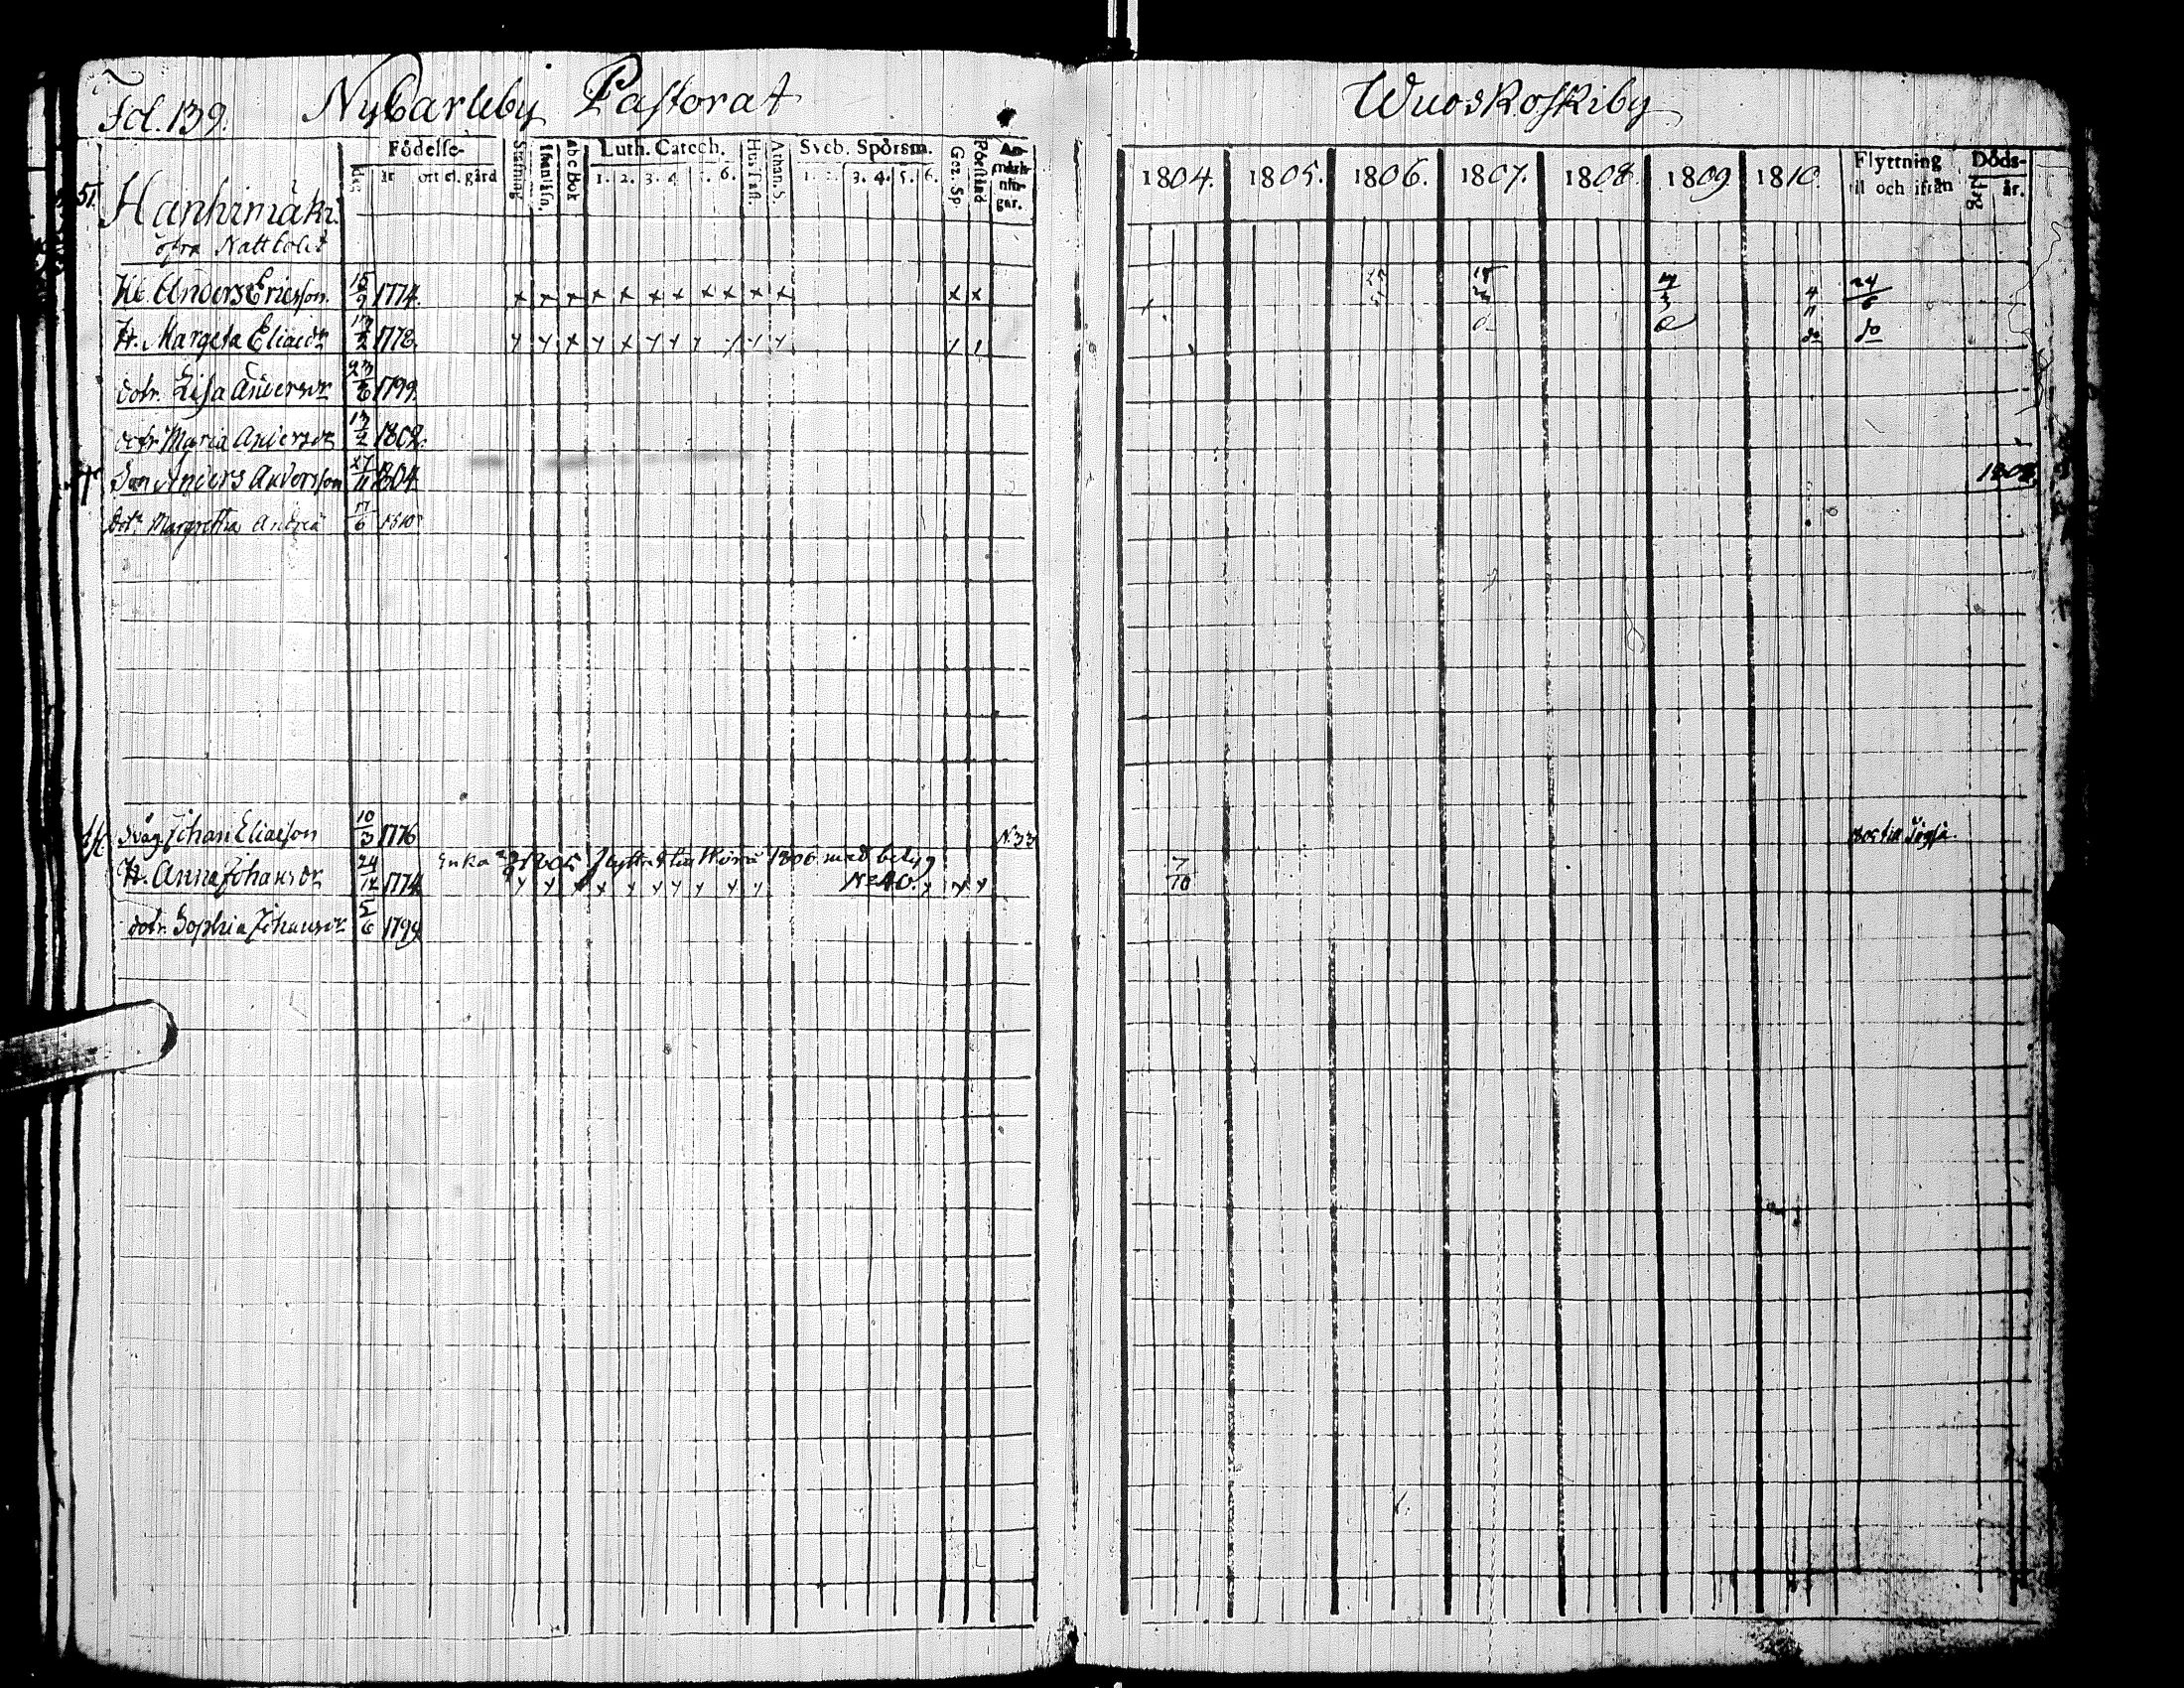 Fol. 139. NyCarleby Pastorat
Wuoskoskiby
Födelse-
dag
år
ort el. gård
Stafning
Innanläsn.
abc Bok
Luth. Catech.
1. 2. 3. 4 . 6.
Hus Tafl.
Athan. S.
Sveb. Spörsm.
1. 2. 3. 4. 5. 6.
Gez. Sp.
Förstånd
An-
märk-
nin-
gar.
1804. 1805. 1806. 1807. 1808. 1809. 1810.
Flyttning
till och ifrån
Döds-
dag år.
51. Hanhimäki
öfra Nattbolet
Anders Ericsson 15/9 1774. x x x x x x x x x x x x x 24/6
H. Margeta Eliaedr 1778 do do
dotr. Lisa Andersdr 23/6 1799.
dotr Maria Andersdr 13/2 1802.
Son Anders Andersson 27/11 1804 1808
Dotr Margretha Andreä 17/6 1810
Svåg. Johan Eliaeson 10/3 1776 N. 33
Enka 1805 flyttat till 1806 med betyg
H. Anna Johansdr 24/12 1774 No 40. 7/10
dotr. Sophia Johansdr 5/6 1799